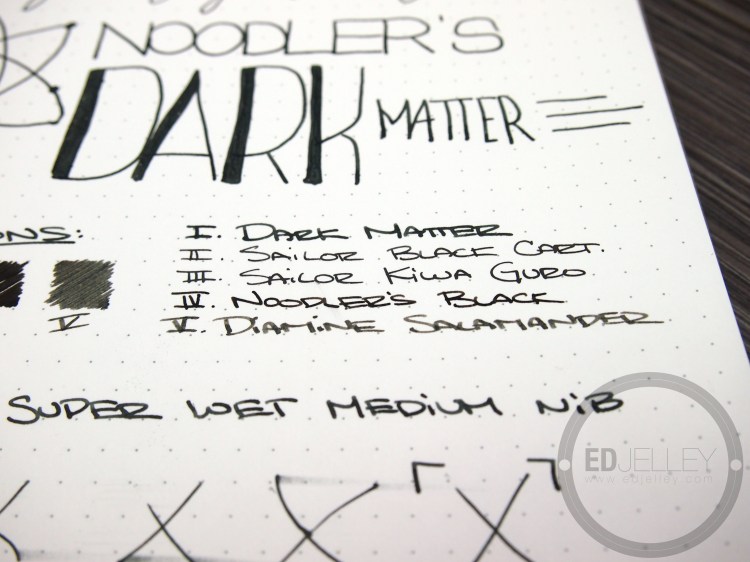 NOODLER'S
DARK MATTER
ONS:
I. DARK MATTER
II. SAILOR BLACK CART.
III. SAILOR KIWA GURO
IV. NOODLER'S BLACK
V
V. DIAMINE SALAMANDER
SUPER WET MEDIUM NIB
EDJELLEY
www.edjelley.com